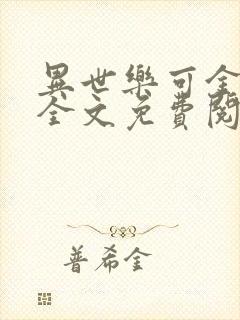 異世樂可全
全文免費閱
普希金